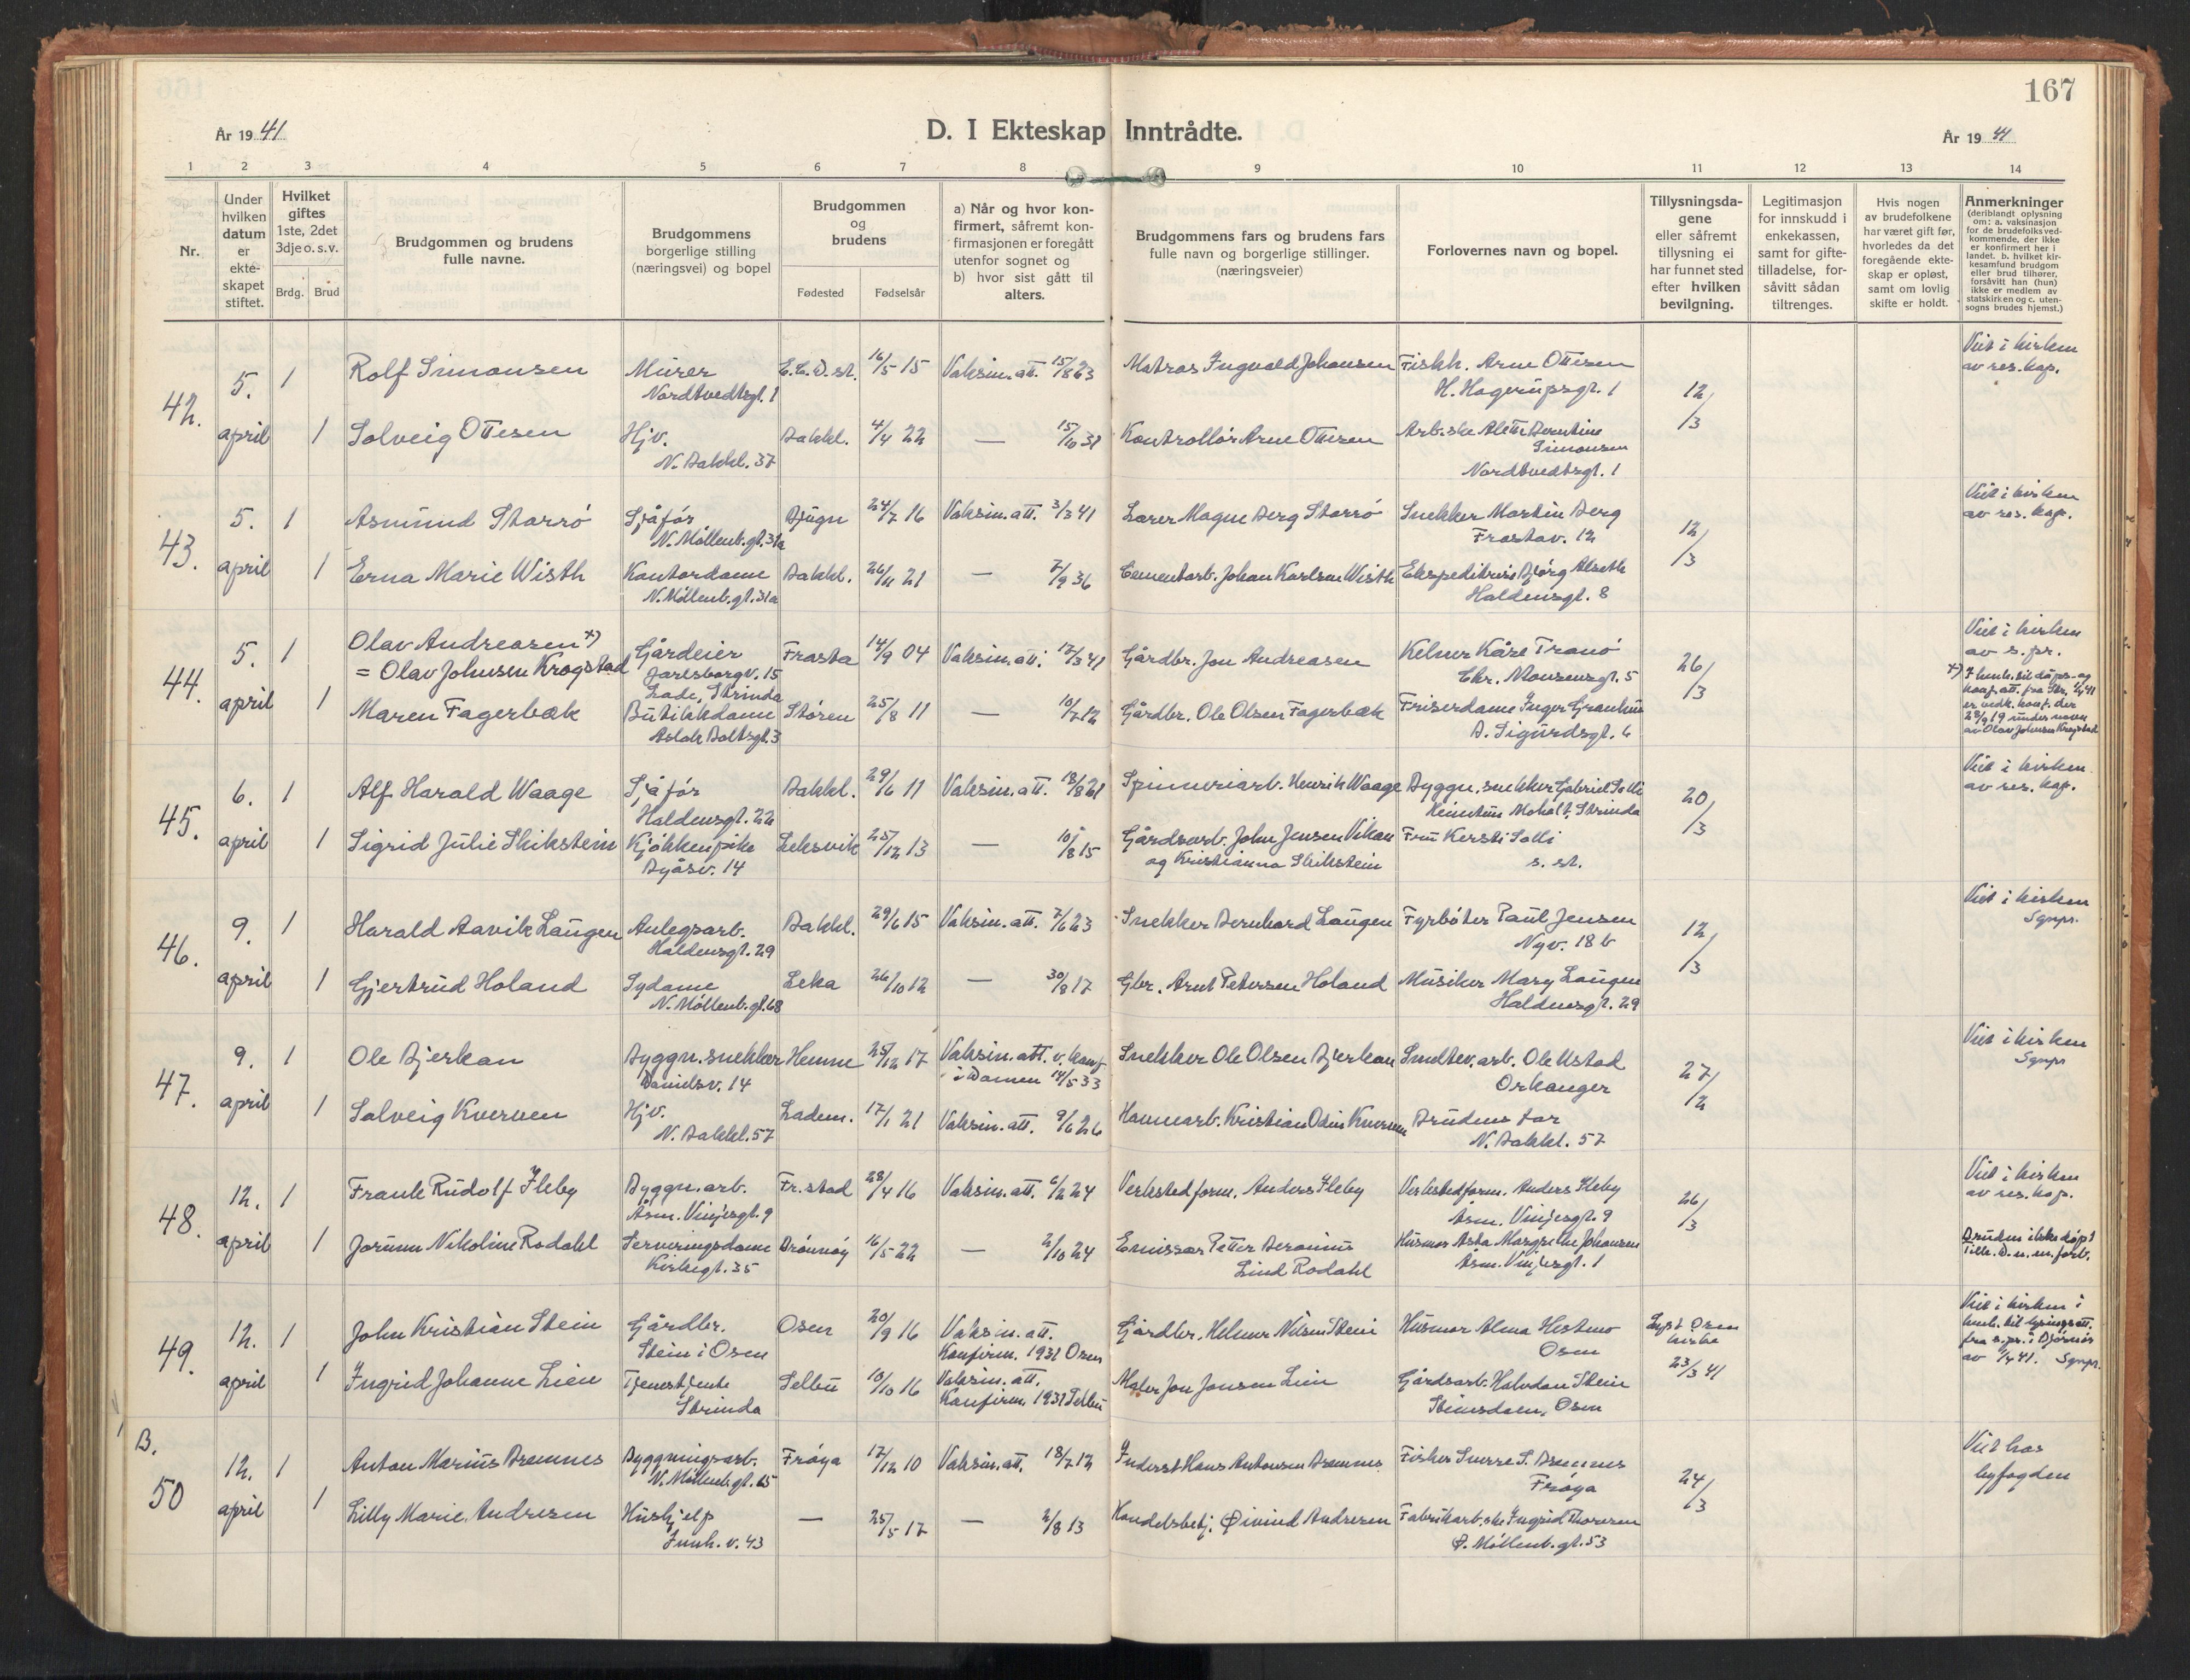 167
År 1941
D. I Ekteskap Inntrådte.
År 1941
1 2 3 4 5 6 7 8 9 10 11 12 13 14
Nr.
Under hvilken datum er ekte-skapet stiftet.
Hvilket giftes 1ste, 2det 3dje o. s. v.
Brdg. Brud
Brudgommen og brudens fulle navne.
Brudgommens borgerlige stilling (næringsvei) og bopel
Brudgommen og brudens
Fødested Fødselsår
a) Når og hvor kon-firmert, såfremt kon-firmasjonen er foregått utenfor sognet og b) hvor sist gått til alters.
Brudgommens fars og brudens fars fulle navn og borgerlige stillinger. (næringsveier)
Forlovernes navn og bopel.
Tillysningsda-gene eller såfremt tillysning ei har funnet sted efter hvilken bevilgning.
Legitimasjon for innskudd i enkekassen, samt for gifte-tilladelse, for-såvitt sådan tiltrenges.
Hvis nogen av brudefolkene har været gift før, hvorledes da det foregående ekte-skap er opløst, samt om lovlig skifte er holdt.
Anmerkninger (deriblandt oplysning om: a. vaksinasjon for de brudefolksved-kommende, der ikke er konfirmert her i landet. b. hvilket kir-kesamfund brudgom eller brud tilhører, forsåvitt han (hun) ikke er medlem av statskirken og c. uten-sogns brudes hjemst.)
42. 5. april
1 Rolf Simonsen Murer E.C.D.st. 16/5 15 Vaksin.att. 15/8 23 Matros Ingvald Johansen Fiskh. Arne Ottesen 12/3 Viet i kirken
Nordtvedtsgt. 1 H. Hagerupsgt. 1 av res.kap.
1 Solveig Ottesen Hjv. Bakkl. 4/4 22 — 15/6 31 Kontrollør Arne Ottesen Arb.ske Alette Berntine
N. Bakkl. 37 Simonsen
Nordtvedtsgt. 1
43. 5. april
1 Asmund Storrø Sjåfør Bjugn 24/7 16 Vaksin.att. 3/3 41 Lærer Magne Berg Storrø Snekker Martin Berg 12/3 Viet i kirken
N. Møllenb.gt. 31a Frostav. 12 av res. kap.
1 Erna Marie Wisth Kontordame Bakkl. 26/11 21 — 7/9 36 Cementarb. Johan Karlsen Wisth Ekspeditrise Bjørg Alseth
N. Møllenb.gt. 31a Haldensgt. 8
44. 5. april
1 Olav Andreasen +) Gårdeier Frosta 14/9 04 Vaksin.att. 17/3 41 Gårdbr. Jon Andreasen Kelner Kåre Tranø 26/3 Viet i kirken
= Olav Johnsen Krogstad Jarlsborgv. 15 Chr. Monsensgt. 5 av s.pr.
Lade, Strinda
1 Maren Fagerbæk Butikkdame Støren 25/8 11 — 10/7 12 Gårdbr. Ole Olsen Fagerbæk Friserdame Inger Granhus
Aslak Boltsgt. 3 B. Sigurdsgt. 6
+) I henh. til dåps- og
konf.att. fra Skr. 1/4 41
er vedk. konf. der
28/9 19 under navn
av Olav Johnsen Krogstad
45. 6. april
1 Alf Harald Waage Sjåfør Bakkl. 29/6 11 Vaksin.att. 18/8 21 Spinneriarb. Henrik Waage Byggn.snekker Gabriel Solli 20/3 Viet i kirken
Haldensgt. 22 Heimtun Moholt, Strinda av res. kap.
1 Sigrid Julie Skikstein Kjøkkenpike Leksvik 25/12 13 — 10/8 15 Gårdsarb. John Jensen Vikan Fru Kersti Solli
Byåsv. 14 og Kristianna Skikstein s. st.
46. 9. april
1 Harald Aavik Laugen Anlegsarb. Bakkl. 29/6 15 Vaksin.att. 7/6 23 Snekker Bernhard Laugen Fyrbøter Paul Jensen 12/3 Viet i kirken
Haldensgt. 29 Nyv. 18 b Sgnpr.
1 Gjertrud Holand Sydame Leka 26/10 12 — 30/8 17 Gbr. Arnt Petersen Holand Musiker Mary Laugen
N. Møllenb.gt. 68 Haldensgt. 29
47. 9. april
1 Ole Bjerkan Byggn.snekker Hemne 25/12 17 Vaksin.att. v. konf. Snekker Ole Olsen Bjerkan Smeltev.arb. Ole Ustad 27/2 Viet i kirken
Danielsv. 14 i Domen 14/5 33 Orkanger Sgnpr
1 Solveig Kverven Hjv. Ladem. 17/1 21 Vaksin.att. 9/6 26 Havnearb. Kristian Odin Kverven Brudens far
N. Bakkl. 57 N. Bakkl. 57
48. 12. april
1 Frank Rudolf Ileby Byggn.arb. Fr.stad 28/4 16 Vaksin.att. 6/2 24 Verkstedform. Anders Ileby Verkstedform. Anders Ileby 26/3 Viet i kirken
Åsm. Vinjesgt. 9 Åsm. Vinjesgt. 9 av res. kap.
1 Jorunn Nikoline Rodahl Serveringsdame Brønnøy 16/5 22 — 2/10 24 Emissær Petter Beronius Husmor Asta Margrethe Johansen Bruden ikke døpt
Kirkegt. 35 Lind Rodahl Åsm. Vinjesgt. 1 Tilh. D.n.m.forb.
49. 12. april
1 John Kristian Stein Gårdbr. Osen 20/9 16 Vaksin.att. Gårdbr. Helmer Nilsen Stein Husmor Alma Hestmo Lyst Osen Viet i kirken i
Stein i Osen Konfirm. 1931 Osen Osen kirke henh. til lysingsatt.
23/3 41 fra s.pr. i Bjørnør
av 1/4 41. Sgnpr.
1 Ingrid Johanne Lien Tjenestjente Selbu 10/10 16 Vaksin.att. Maler Jon Jonsen Lien Gårdsarb. Halvdan Stein
Strinda Konfirm. 1931 Selbu Steinsdalen, Osen
B.
50 12. april
1 Anton Marius Bremnes Byggningsarb. Frøya 17/12 10 Vaksin.att. 18/7 12 Inderst Hans Antonsen Bremnes Fisker Sverre S. Bremnes 24/3 Viet hos
N. Møllenb.gt. 65 Frøya byfogden
1 Lilly Marie Andresen Hushjelp — 25/5 17 — 2/8 13 Handelsbetj. Øivind Andresen Fabrikarb.ske Ingrid Thoresen
Innh. v. 43 Ø. Møllenb.gt. 53